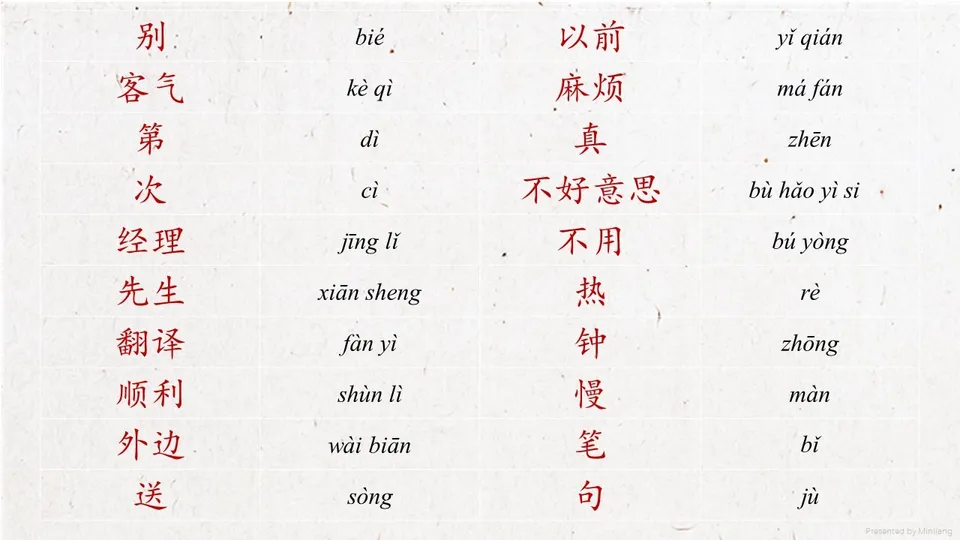 别 bié 以前 yǐ qián
客气 kè qì 麻烦 má fán
第 dì 真 zhēn
次 cì 不好意思 bù hǎo yì si
经理 jīng lǐ 不用 bú yòng
先生 xiān sheng 热 rè
翻译 fàn yì 钟 zhōng
顺利 shùn lì 慢 màn
外边 wài biān 笔 bǐ
送 sòng 句 jù
Presented by Minjieng